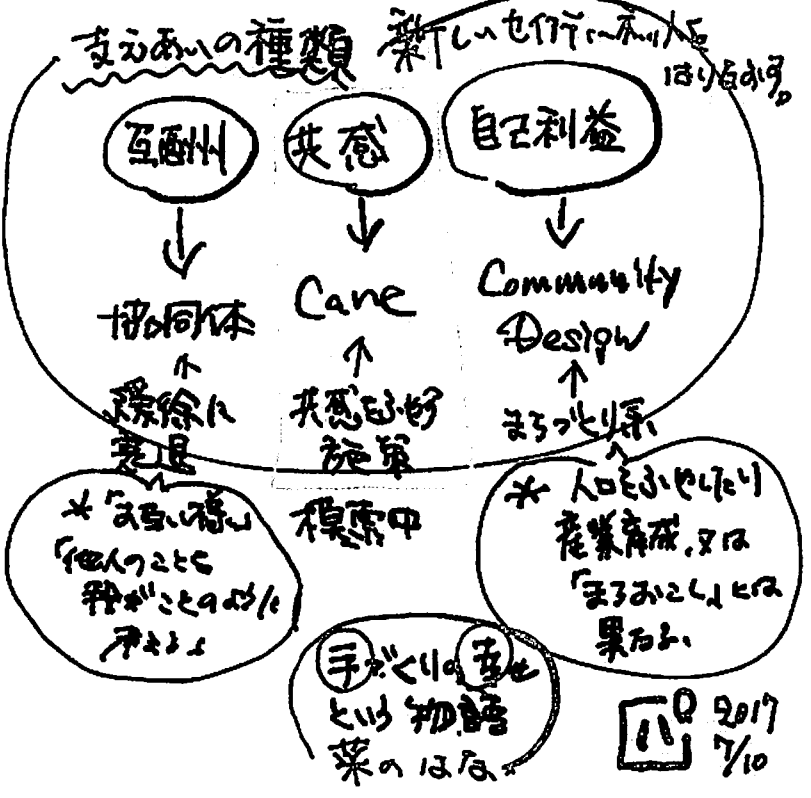 支えあいの種類
新しいセイフティーネットを
はりなおす。
互酬
共感
自己利益
協同体
Care
Community
Design
緩徐に
衰退
共感をふやす
施策
まちづくり系
模索中
*「お互い様」
「他人のことを
我がことのように
考える」
* 人口をふやしたり
産業育成、又は
「まちおこし」とは
異なる、
手づくりの幸せ
という物語
菜のはな。
2017
7/10